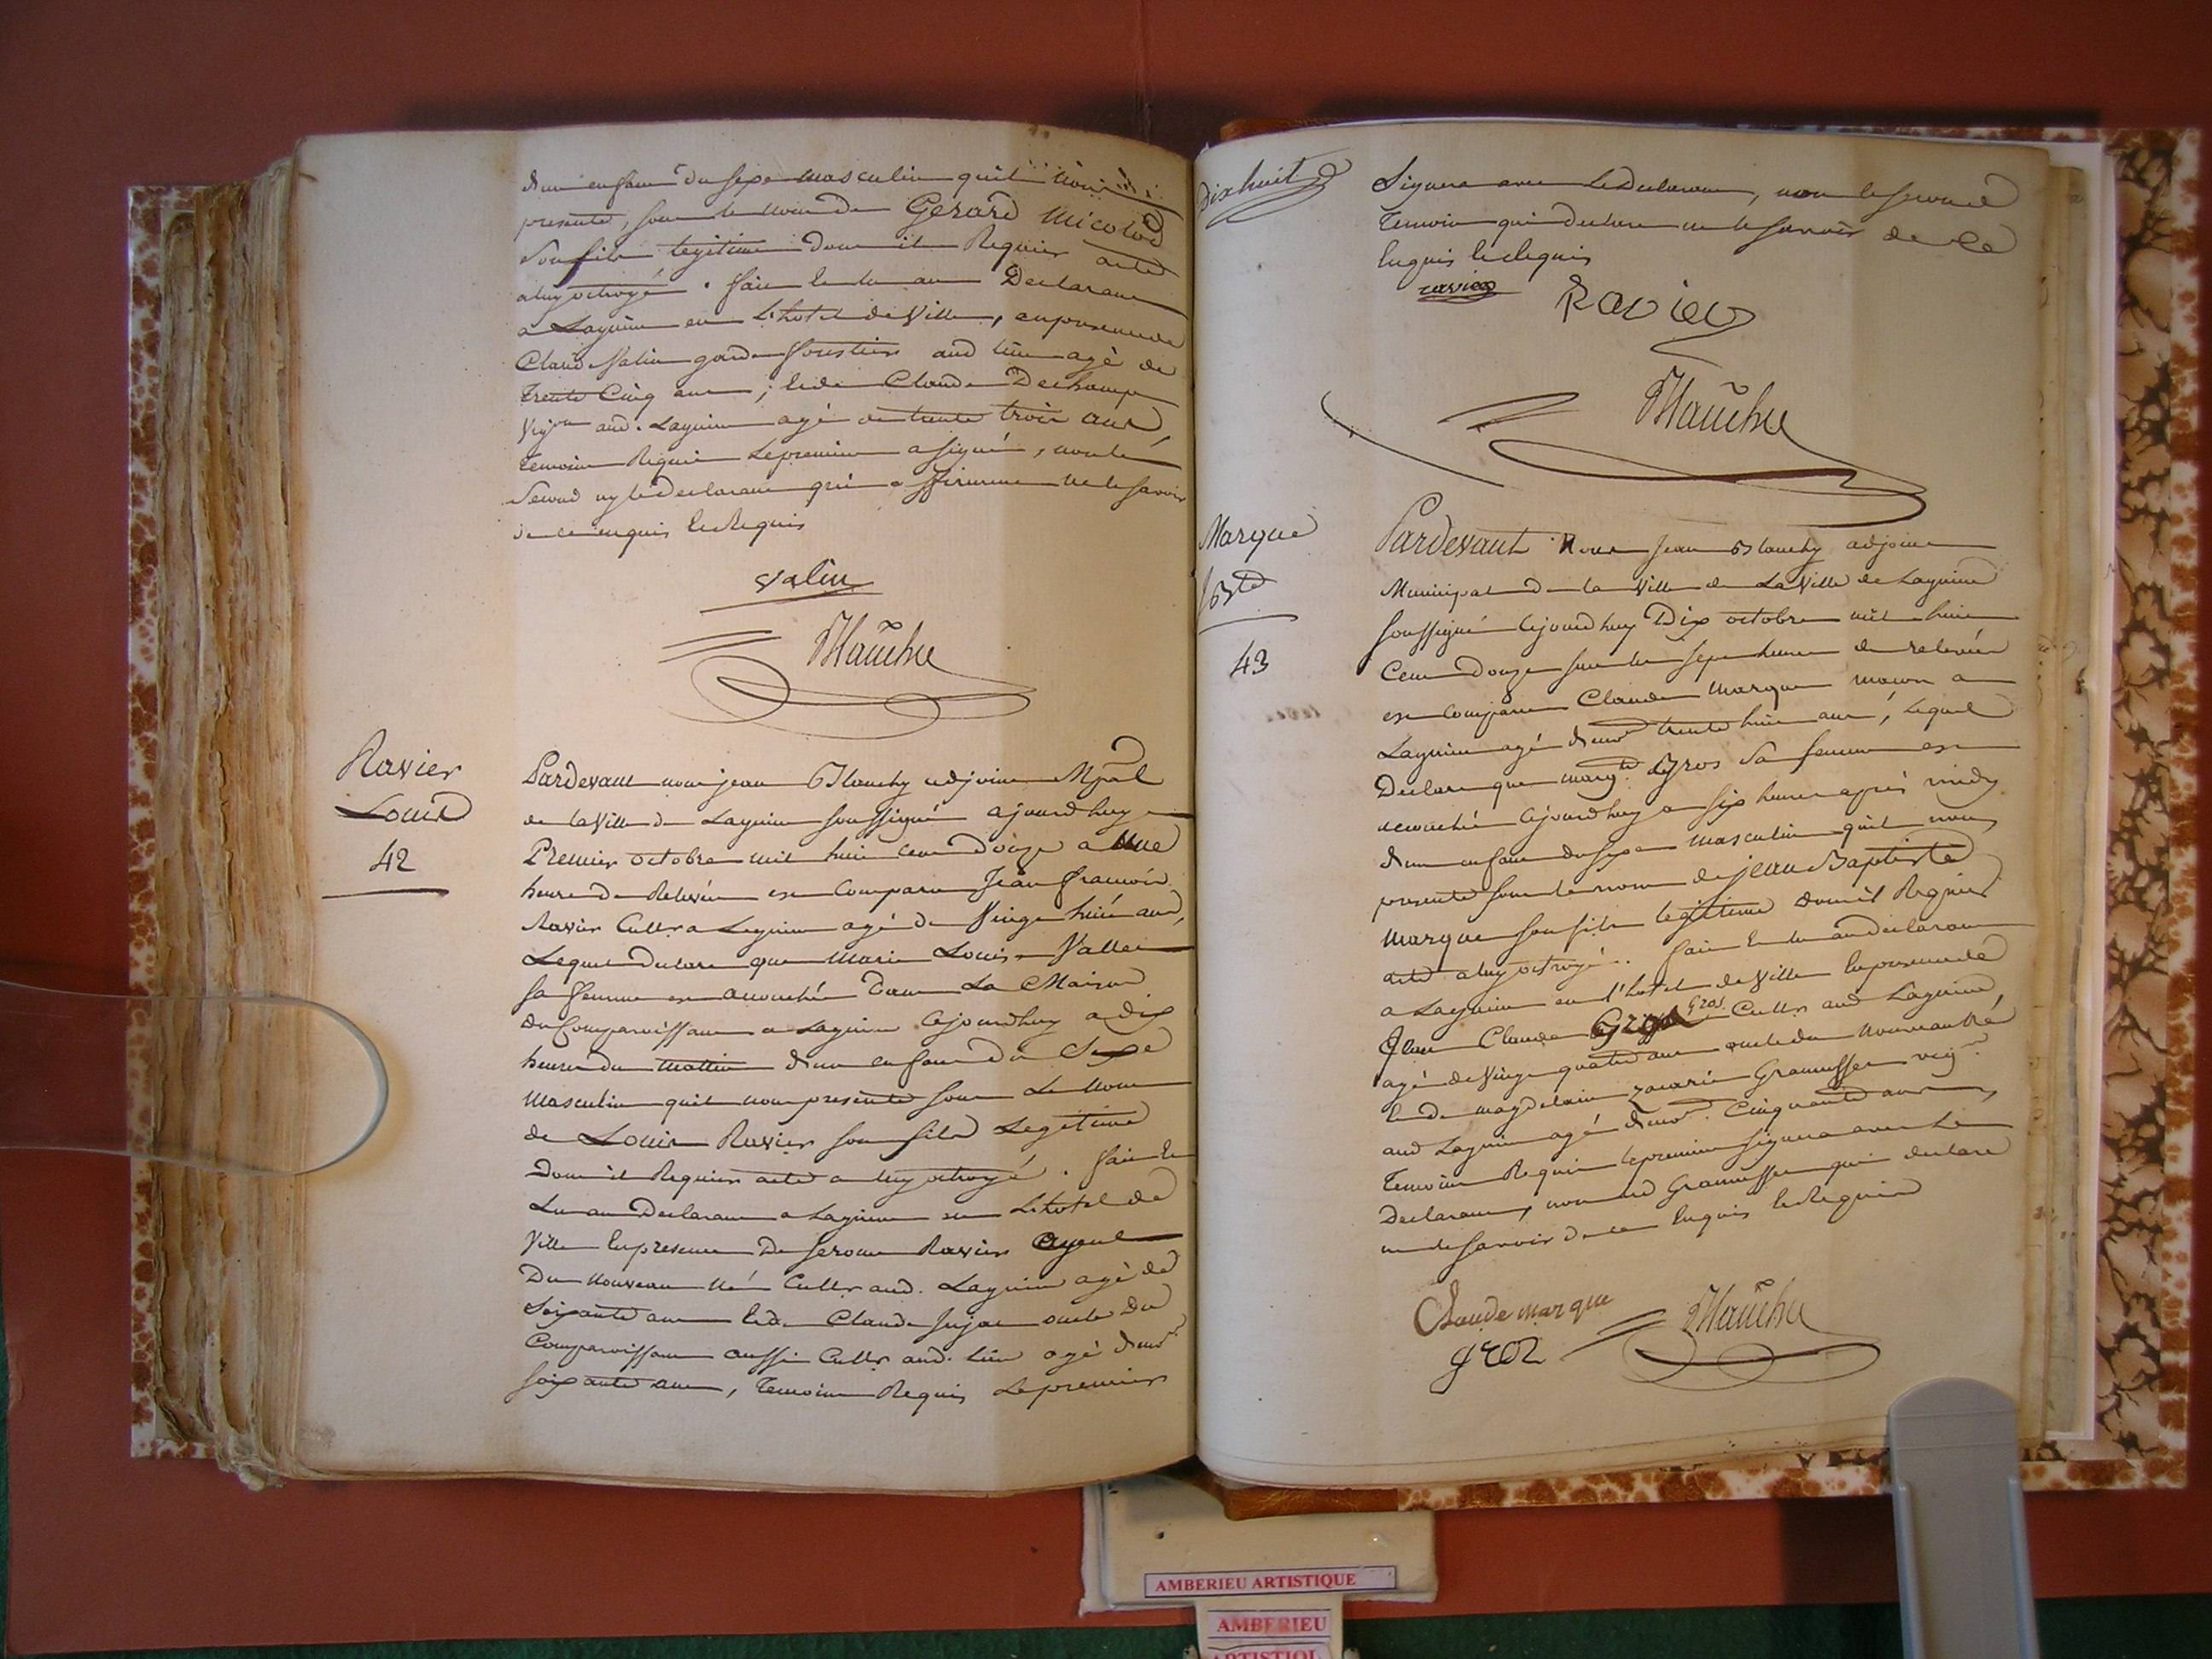 d'un enfant du sexe masculin quil nous
presente, sous le nom de Gerard Micolod
son fils legitime dont il Requier acte
a luy octroyé. fait lu au Declarant
a Lagnieu en L'hotel de Ville, en presence de
Claude Salin garde forestier aud lieu agé de
trente Cinq ans; & de Claude Dechamp
Vigon aud. Lagnieu agé de trente trois ans,
temoins Requis Le premier a signé, non le
Second ny le Declarant qui a affirmé ne le savoir
de ce enquis & Requis
Salin
Blanchy
Ravier
Louis
42
Pardevant nous jean Blanchy adjoint Mpal
de la Ville de Lagnieu soussigné ajourdhuy
Premier octobre mil huit cent Douze a une
heure de Relevée est Comparu Jean francois
Ravier Cultr a Lagnieu agé de Vingt huit ans,
Lequel Declare que Marie Louise Vallet
sa femme est accouchée Dans La Maison
du Comparoissant a Lagnieu cejourdhuy a dix
heures du Mattin d'un enfant du Sexe
Masculin quil nous presente sous Le Nom
de Louis Ravier son fils Legitime
Dont il Requier acte a luy octroyé. fait &
Lu au Declarant a Lagnieu en L'hotel de
Ville En presence De Jerome Ravier Ayeul
Du Nouveau Né Cultr aud. Lagnieu agé de
Soixante ans & de Claude Jujat oncle Du
Comparoissant aussi Cultr aud. lieu agé d'envon
soixante ans, temoins Requis Le premier
Dixhuit
Signera avec Le Declarant, non le second
temoin qui declare ne le savoir de ce
Enquis & Requis
ravier
Ravier
Blanchy
Marque
J Bte
43
Pardevant Nous Jean Blanchy adjoint
Municipal de la Ville de La Ville de Lagnieu
soussigné cejourdhuy Dix octobre mil huit
Cent Douze sur les sept heures de relevée
est Comparu Claude Marque macon a
Lagnieu agé d'envon trente huit ans, Lequel
Declare que margte Gros Sa femme est
accouchée cejourdhuy a six heures après midy
d'un enfant du sexe masculin quil nous
presente sous le nom de jean Baptiste
Marque son fils legitime dont il Requier
acte a luy octroyé.. fait & lu au declarant
a Lagnieu en l'hotel de Ville En presence de
Jean Claude Gros Cultr aud Lagnieu,
agé de Vingt quatre ans oncle du nouveau né
& de magdelain zacarie Gramusset vign
aud Lagnieu agé d'envon Cinquante ans,
temoins Requis le premier signera avec Le
Declarant, non led Gramusset qui declare
ne le savoir de ce Enquis & Requis
Claude marque
Blanchy
groz
AMBERIEU ARTISTIQUE
AMBERIEU